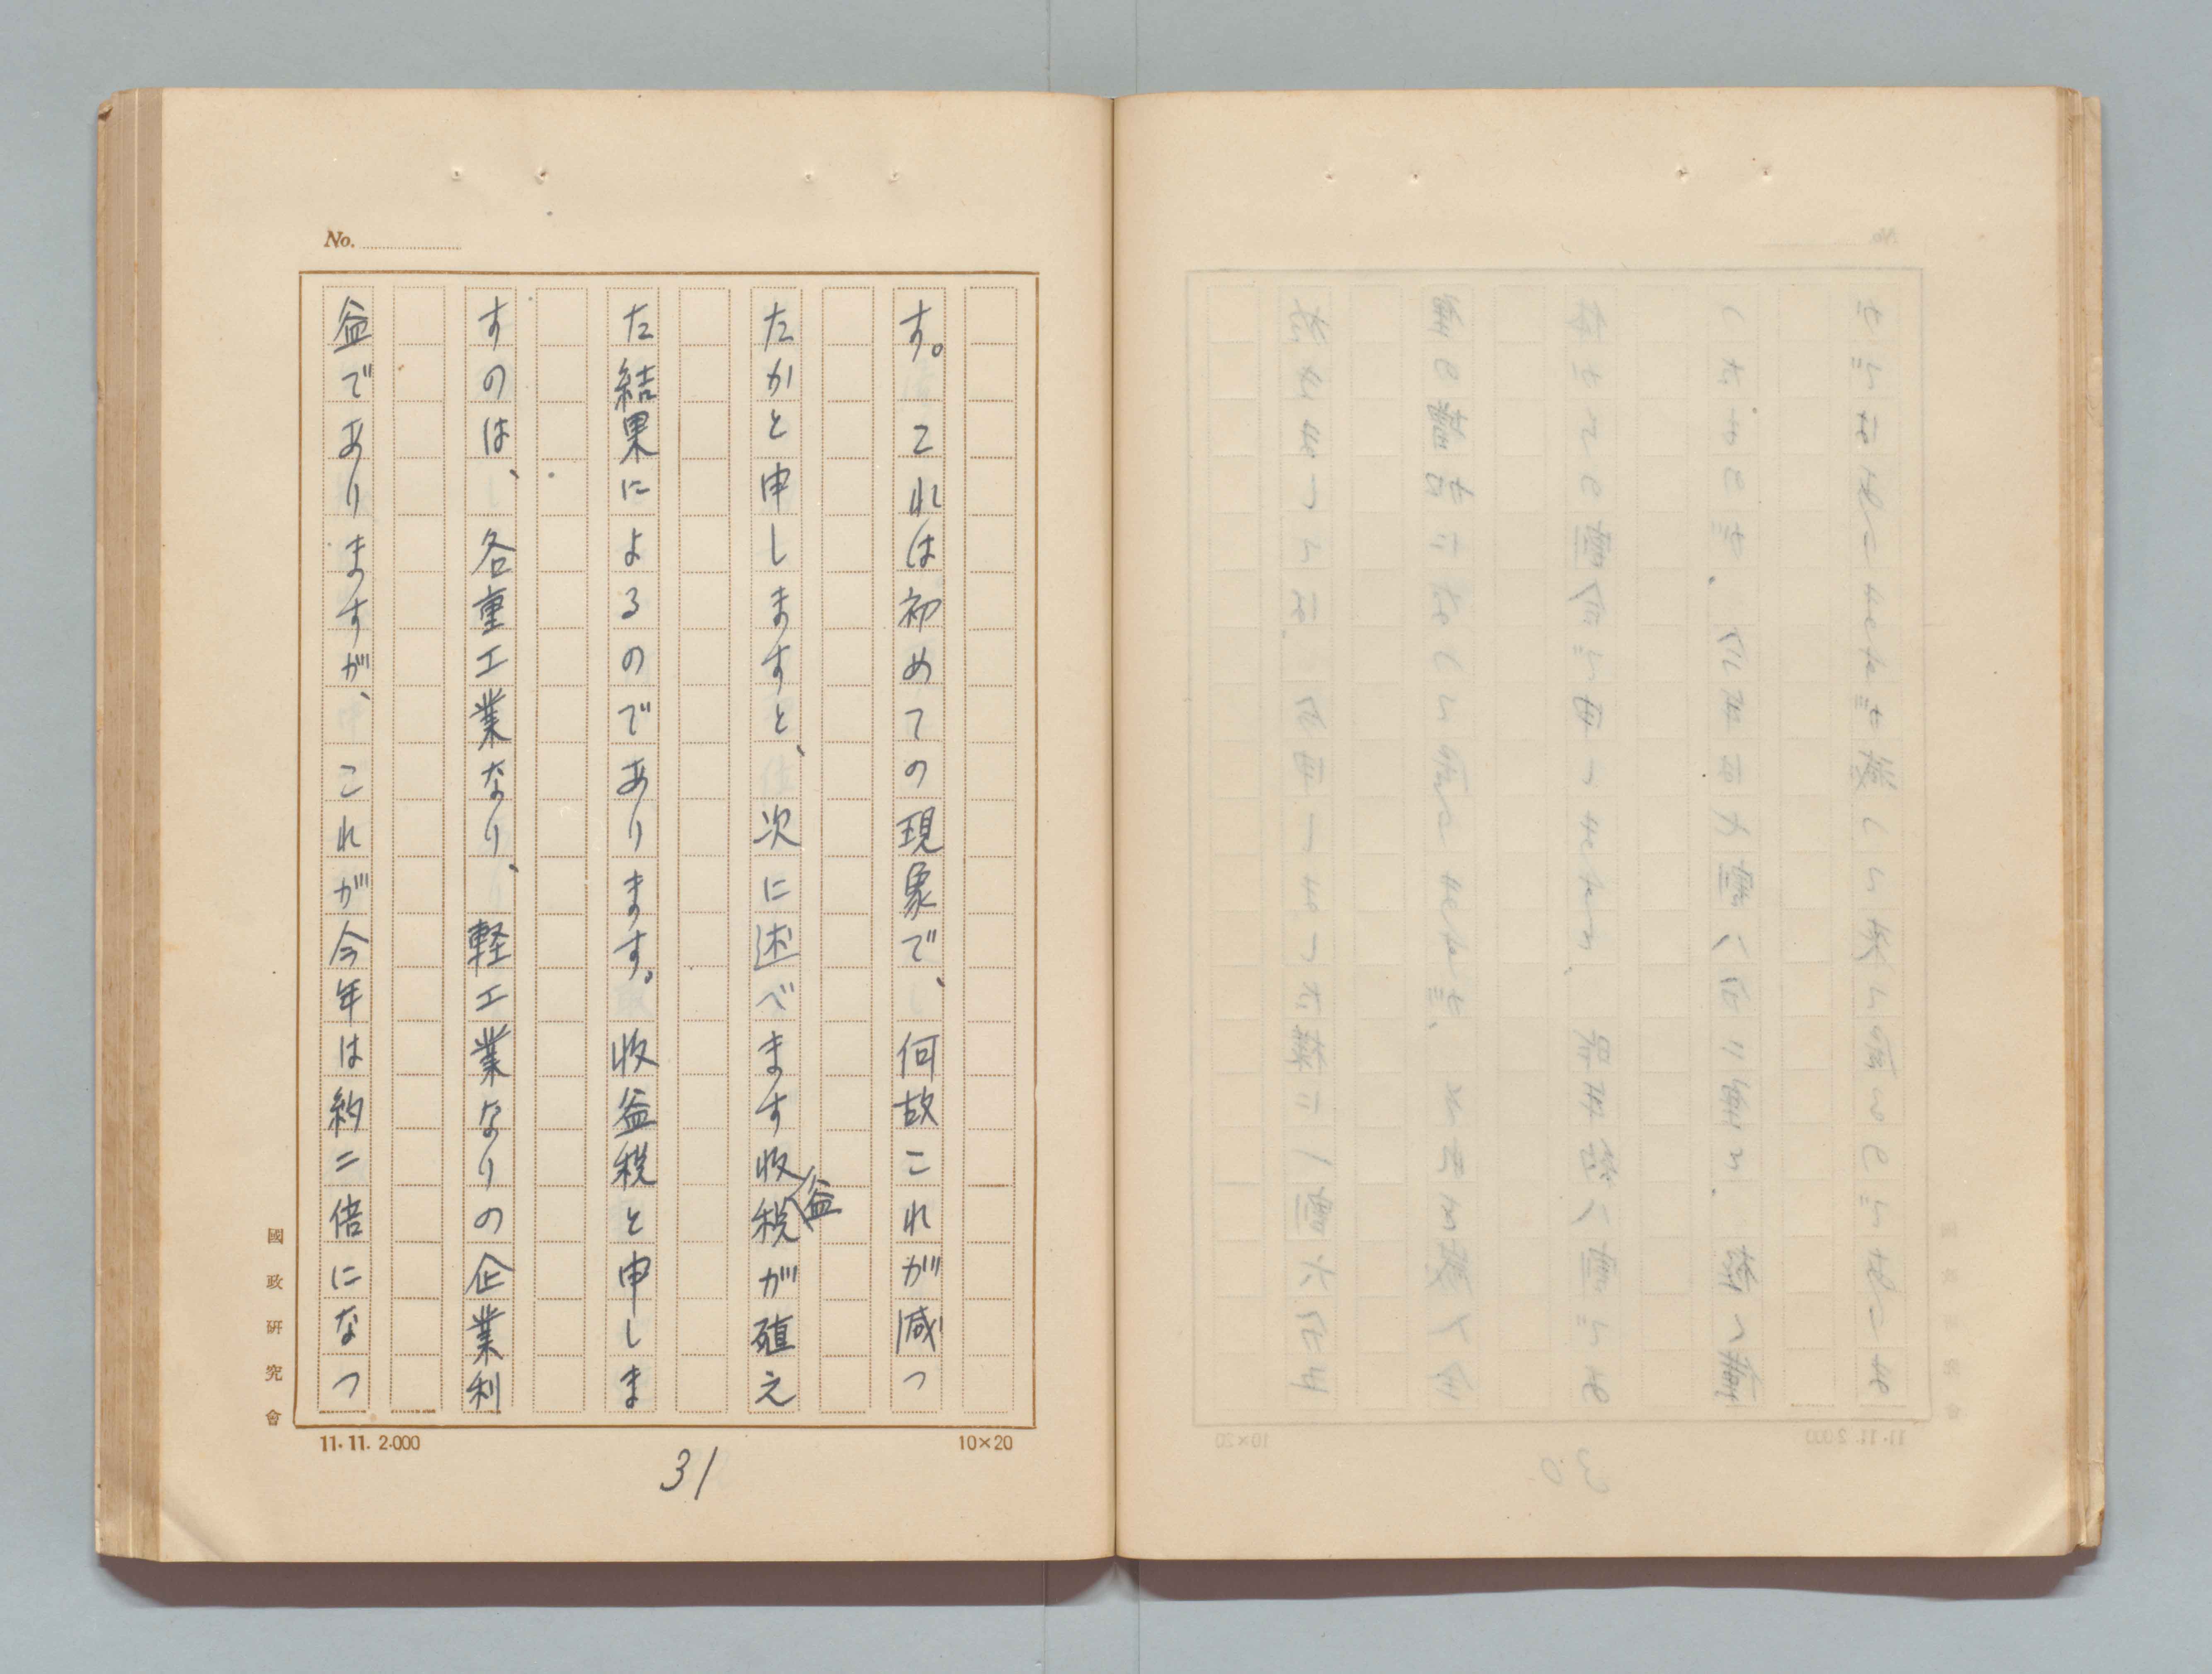 No.
す。これは初めての現象で、何故これが減つ
たかと申しますと、次に述べます收益税が殖え
た結果によるのであります。收益税と申しま
すのは、各重工業なり、軽工業なりの企業利
益でありますが、これが今年は約二倍になつ
國政研究會
11.11. 2.000
10×20
31